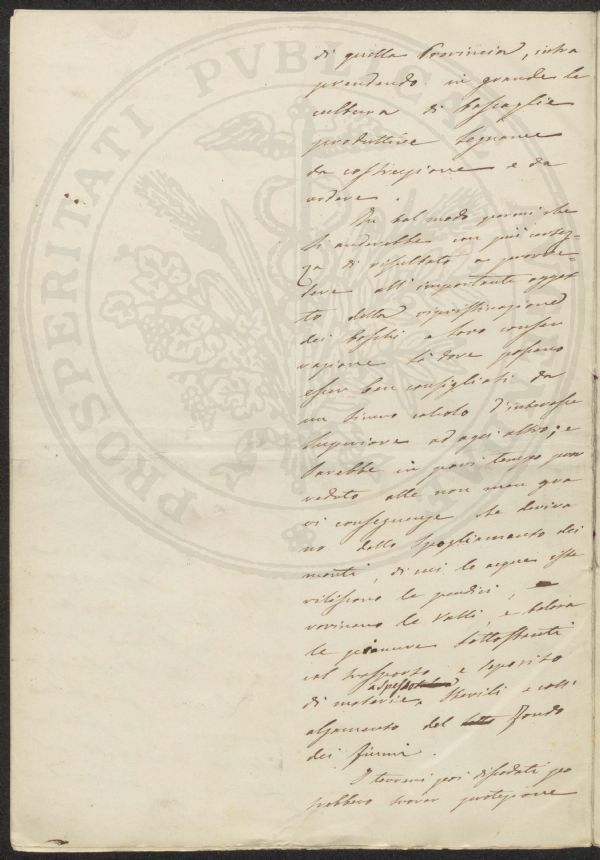 di quella Provincia, intra
prendendo in grande la
cultura di boscaglie
produttive legname
da costruzione e da
ardere.
In tal modo parmi che
si anderebbe con più certez-
za di risultato a provve-
dere all'importante ogget
to della ripristinazione
dei boschi e loro conser
vazione là dove possano
esser ben consigliati da
un sicuro calcolo d'interesse
superiore ad ogni altro; e
sarebbe in pari tempo prov
veduto alle non men gra
vi conseguenze che deriva
no dallo spogliamento dei
monti, di cui le acque este
riliscono le pendici,
rovinano le Valli, e talora
le pianure sottostanti
col trasporto e deposito
di materie sterili e coll'
alzamento del fondo
dei fiumi.
I terreni poi disodati po
trebbero trovar protezione
PROSPERITATI PVBLICAE